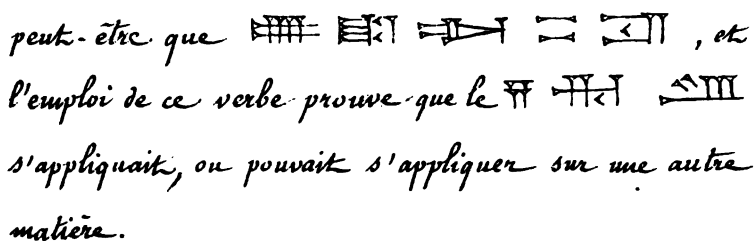 peut-être que , et
l'emploi de ce verbe prouve que le
s'appliquait, ou pouvait s'appliquer sur une autre
matière.